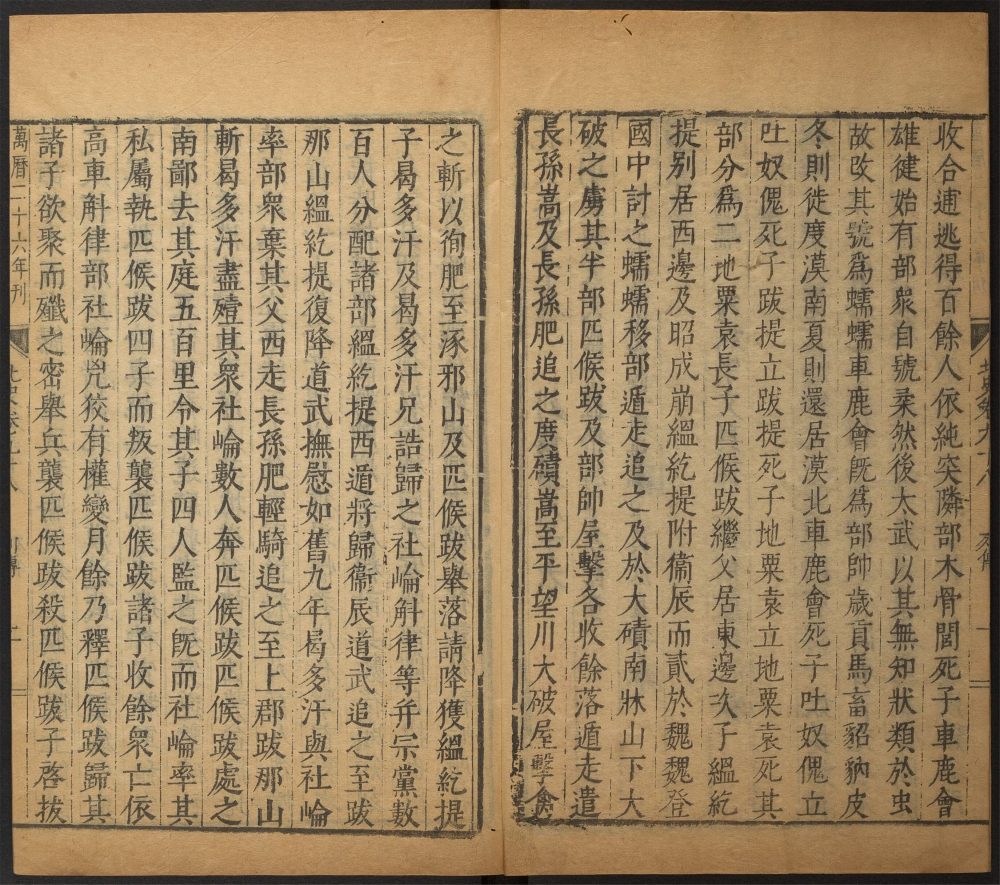 收合逋逃得百餘人依純突隣部木骨閭死子車鹿會
雄健始有部衆自號柔然後太武以其無知狀類於虫
故改其號爲蠕蠕車鹿會旣爲部帥歲貢馬畜貂豽皮
冬則徙度漠南夏則還居漠北車鹿會死子吐奴傀立
吐奴傀死子跋提立跋提死子地粟袁立地粟袁死其
部分爲二地粟袁長子匹候跋繼父居東邊次子縕紇
提别居西邊及昭成崩縕紇提附衞辰而貳於魏魏登
國中討之蠕蠕移部遁走追之及於大磧南牀山下大
破之虜其半部匹候跋及部帥屋擊各收餘落遁走遣
長孫嵩及長孫肥追之度磧嵩至平望川大破屋擊禽
北史卷九十八 列傳 一
之斬以徇肥至涿邪山及匹候跋舉落請降獲縕紇提
子曷多汗及曷多汗兄誥歸之社崘斛律等幷宗黨數
百人分配諸部縕紇提西遁將歸衞辰道武追之至跋
那山縕紇提復降道武撫慰如舊九年曷多汗與社崘
率部衆棄其父西走長孫肥輕騎追之至上郡跋那山
斬曷多汗盡殪其衆社崘數人奔匹候跋匹候跋處之
南鄙去其庭五百里令其子四人監之旣而社崘率其
私屬執匹候跋四子而叛襲匹候跋諸子收餘衆亡依
高車斛律部社崘兇狡有權變月餘乃釋匹候跋歸其
諸子欲聚而殲之密舉兵襲匹候跋殺匹候跋子啓拔
萬曆二十六年刊 北史卷九十八 列傳 二